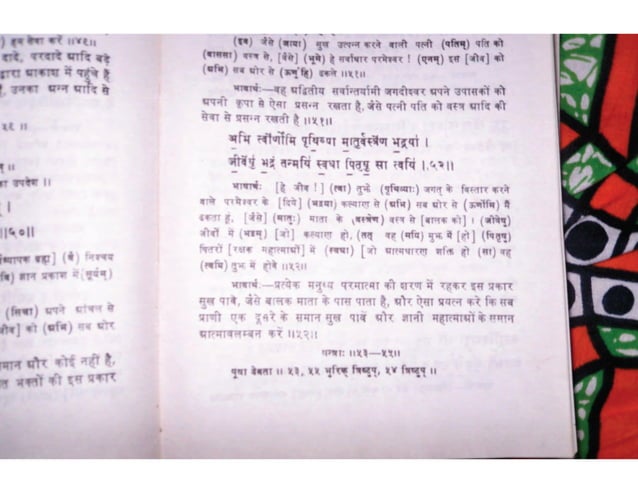 ) हम सेवा करें ॥४९॥
दादे, परदादे आदि बड़े
द्वारा आकाश में पहुंचे हैं
, उनका अन्न आदि से
५६ ॥
का उपदेश ॥
॥५०॥
र्वव्यापक ब्रह्म] (वै) निश्चय
ज्ञान प्रकाश में (सूर्यम्)
(सिचा) अपने आंचल से
जीव] को (अभि) सब ओर
मान और कोई नहीं है,
त भक्तों की इस प्रकार
(इव) जैसे (जाया) सुख उत्पन्न करने वाली पत्नी (पतिम्) पति को
(वाससा) वस्त्र से, [वैसे] (भूमे) हे सर्वाधार परमेश्वर ! (एनम्) इस [जीव] को
(अभि) सब ओर से (ऊर्णुहि) ढकले ॥५१॥
भावार्थः—वह अद्वितीय सर्वान्तर्यामी जगदीश्वर अपने उपासकों को
अपनी कृपा से ऐसा प्रसन्न रखता है, जैसे पत्नी पति को वस्त्र आदि की
सेवा से प्रसन्न रखती है ॥५१॥
अभि त्वोर्णोमि पृथिव्या मातुर्वस्त्रेण भद्रया ।
जीवेषु भद्रं तन्मयि स्वधा पितृषु सा त्वयि ।५२॥
भाषार्थः [हे जीव !] (त्वा) तुझे (पृथिव्याः) जगत् के विस्तार करने
वाले परमेश्वर के [दिये] (भद्रया) कल्याण से (अभि) सब ओर से (ऊर्णोमि) मैं
ढकता हूं, [जैसे] (मातुः) माता के (वस्त्रेण) वस्त्र से [बालक को] । (जीवेषु)
जीवों में (भद्रम्) [जो] कल्याण हो, (तत् वह (मयि) मुझ में [हो] (पितृषु)
पितरों [रक्षक महात्माओं] में (स्वधा) [जो आत्मधारण शक्ति हो (सा) वह
(त्वयि) तुझ में होवे ॥५२॥
भावार्थः—प्रत्येक मनुष्य परमात्मा की शरण में रहकर इस प्रकार
सुख पावे, जैसे बालक माता के पास पाता है, और ऐसा प्रयत्न करे कि सब
प्राणी एक दूसरे के समान सुख पावें और ज्ञानी महात्माओं के समान
आत्मावलम्बन करें ॥५२॥
मन्त्राः ॥५३—५५॥
पूषा देवता ॥ ५३, ५५ भुरिक् त्रिष्टुप्, ५४ त्रिष्टुप् ॥